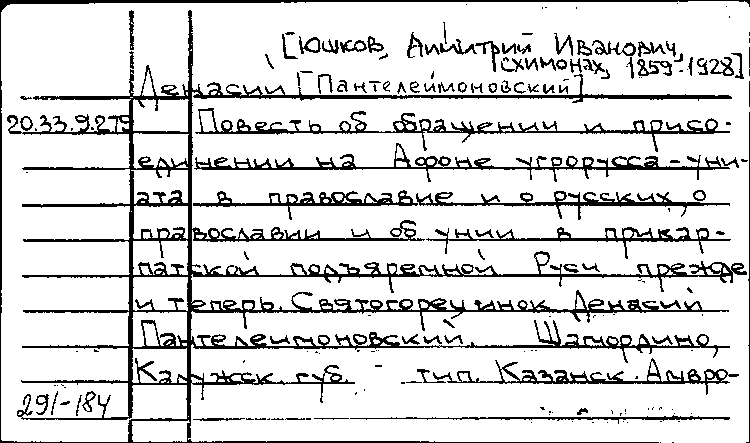 [Юшков, Димитрий Иванович,
схимонах, 1859-1928]
Денасий [Пантелеймоновский]
20.33.9.279 Повесть об обращении и присо-
единении на Афоне угрорусса-уни-
ата в православие и о русских, о
православии и об унии в прикар-
патской подъяремной Руси прежде
и теперь. Святогорец инок Денасий
Пантелеимоновский. Шамордино,
Калужск. губ. - тип. Казанск. Амвро-
291-184